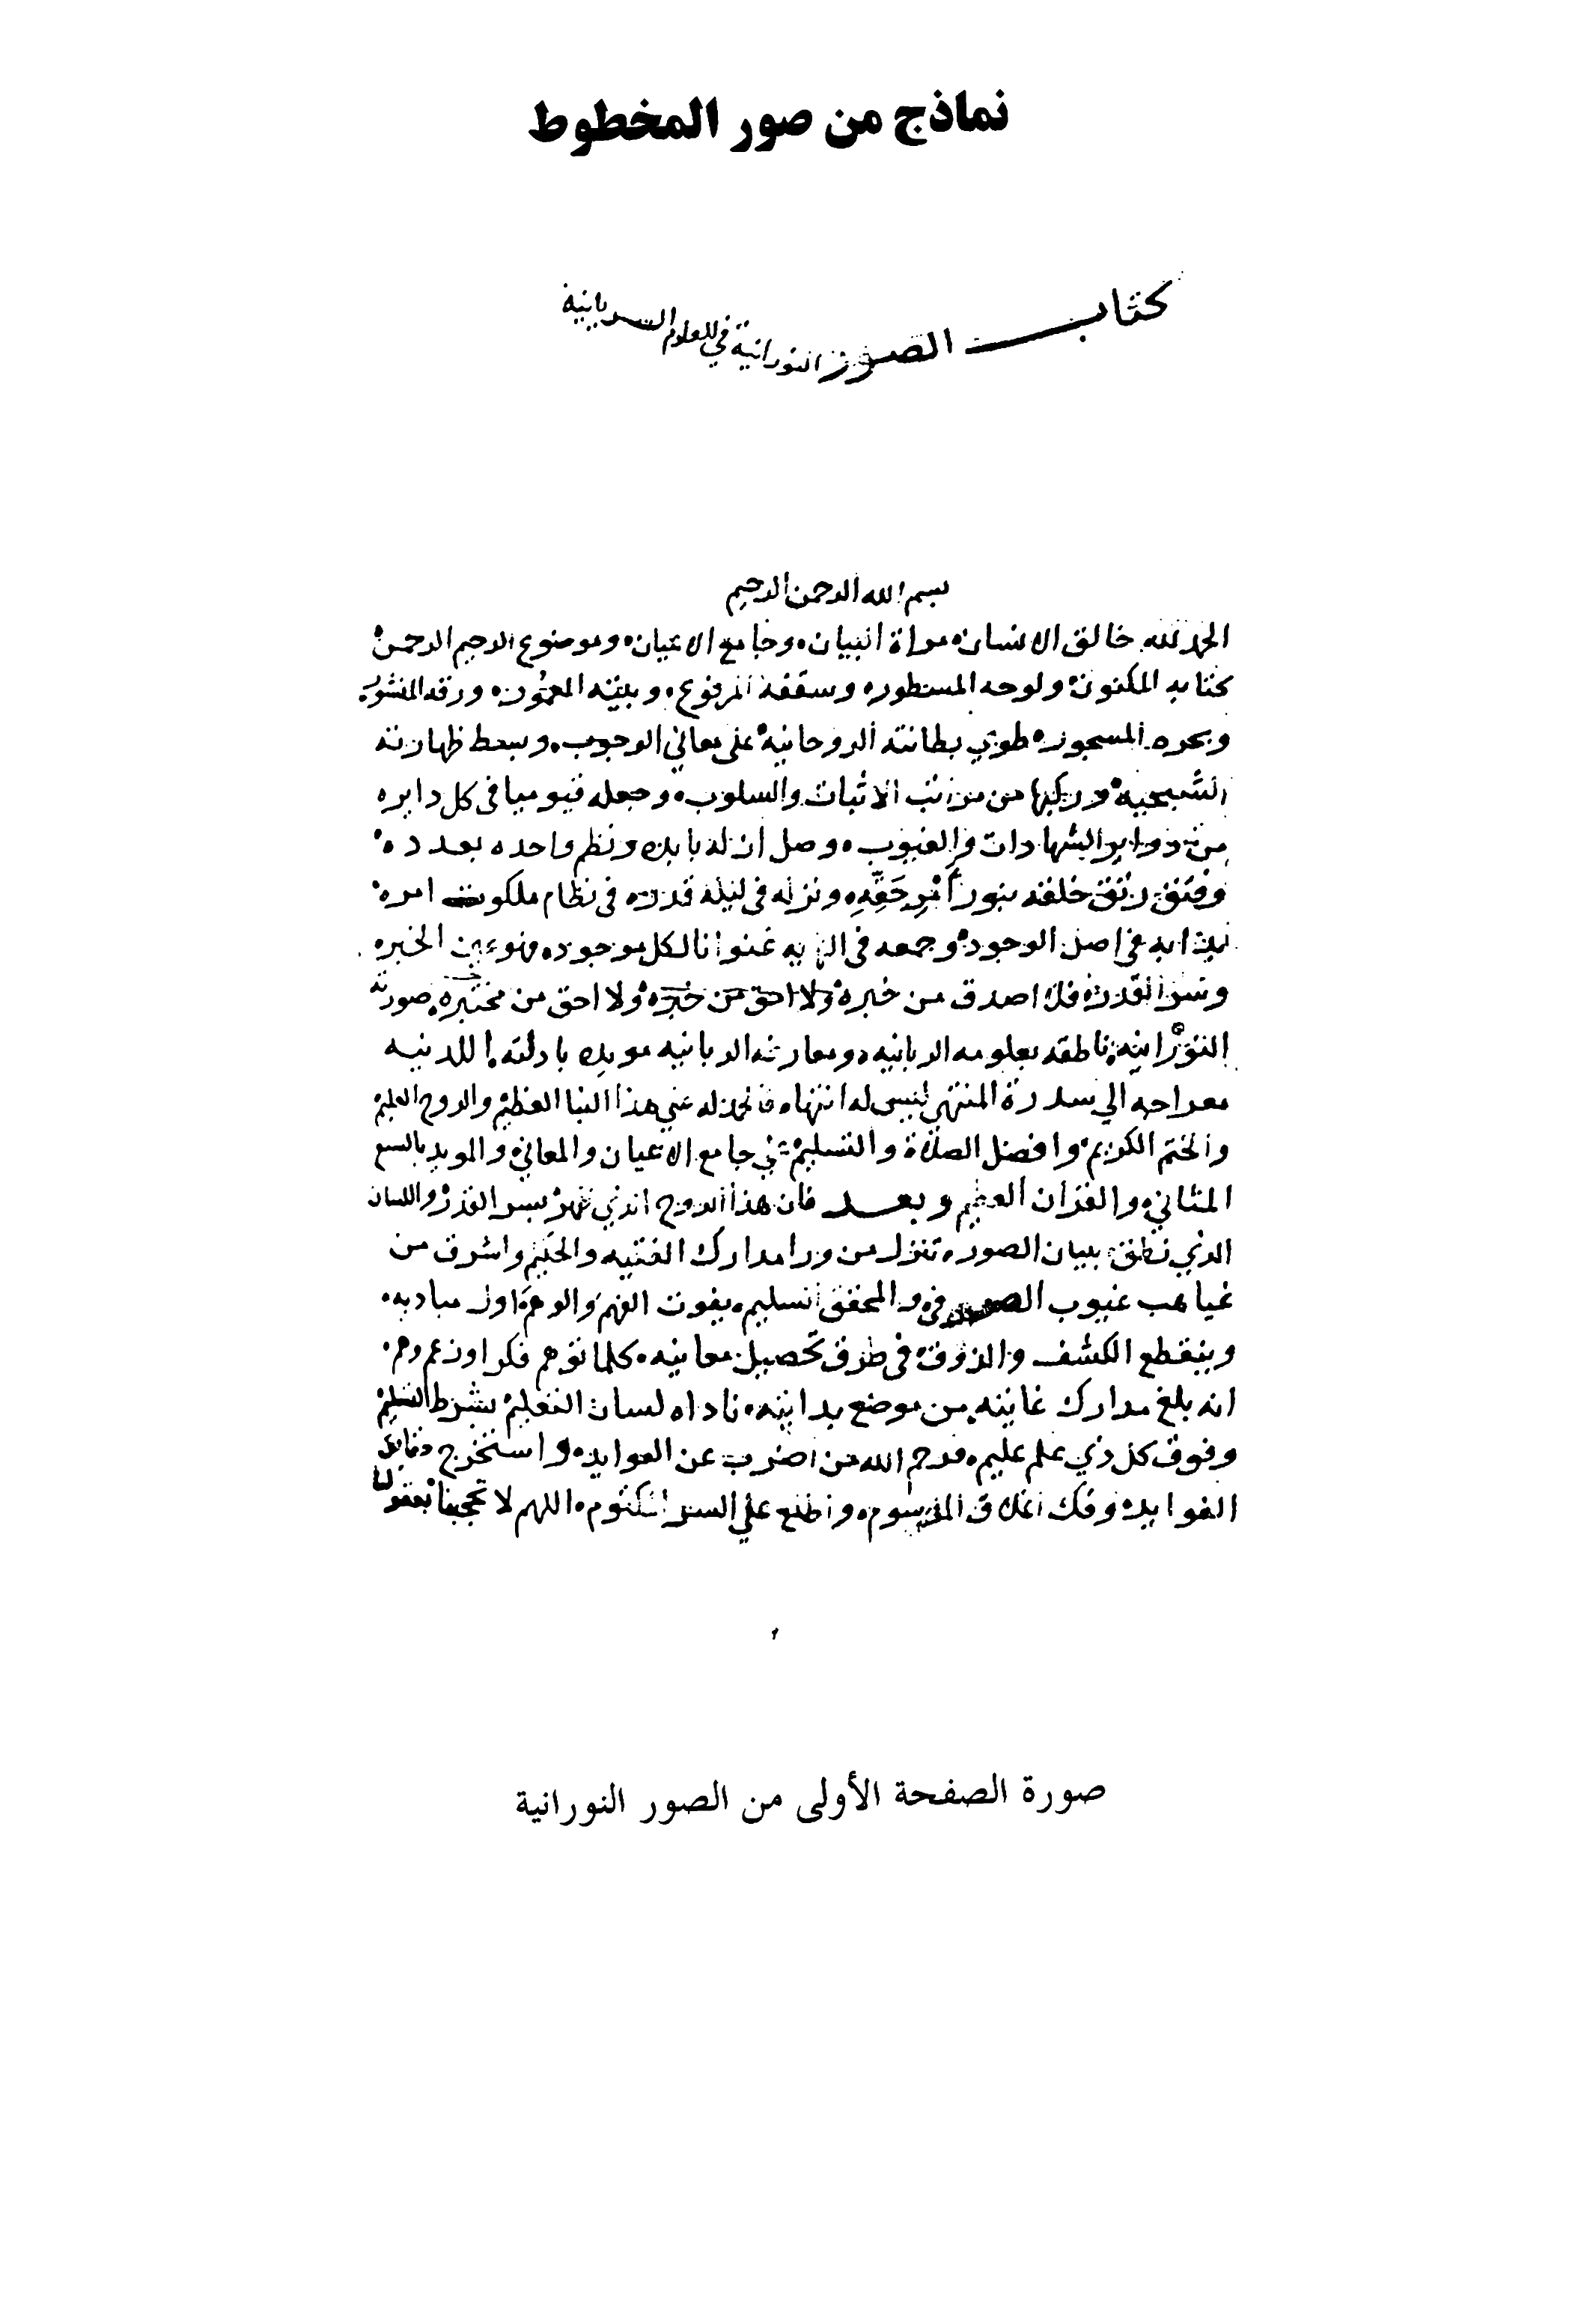 نماذج من صور المخطوط
كتاب الصور النورانية في العلوم السريانية
بسم الله الرحمن الرحيم
الحمد لله خالق الانسان مراة البيان وجامع الاعيان وموضوع الرحيم الرحمن
كتابه المكنون ولوحه المسطور وسقفه المرفوع وبيته المعمور ورقه المنشور
وبحره المسجور طوي بطانته الروحانية على معاني الوجوب وبسط ظهارته
الشبحية من مراتب الاثبات والسلوب وجعله قيوميا في كل دايره
من دواير الشهادات والغيوب وصل ازله بابده ونظم واحده بعدده
وفتق رتق خلقه بنور امر حقه ونزله في ليلة قدره في نظام ملكوت امره
في اصل الوجود وجمعه في عنوانا لكل موجود فهو عين الخبره
وسر القدرة فلا اصدق من خبره ولا احق من خبره ولا احق من مختبره صورته
النورانيه ناطقه بعلومه الربانيه ومعارفه الربانيه مويده بادلته اللدنيه
معراجه الي سدرة المنتهي ليس له انتهاء فالحمد له علي هذا النبا العظيم والروح العليم
والختم الكريم وافضل الصلاة والتسليم علي جامع الاعيان والمعاني والمويد بالسبع
المثاني والقران العظيم وبعد فان هذا الروح الذي ظهر بسر القدر واللسان
الذي نطق ببيان الصور تنزل من ورا مدارك الفقيه والحكيم واشرق من
غياهب غيوب والمحقق التسليم يفوت الفهم والوهم اول مباديه
وينقطع الكشف والذوق في طرق تحصيل معانيه كلما توهم فكر او زعم وهم
انه بلغ مدارك غايته من موضع بدايته ناداه لسان التعليم بشرط التسليم
وفوق كل ذي علم عليم فرحم الله من اضرب عن العوايد واستخرج دقايق
الفوايد وفك اغلاق المرسوم واطلع علي السر المكتوم اللهم لا تحجبنا بعقولنا
صورة الصفحة الأولى من الصور النورانية